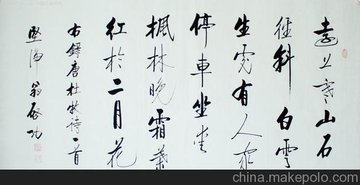 遠上寒山石
徑斜白雲
生處有人家
停車坐愛
楓林晚霜葉
紅於二月花
右錄唐杜牧詩一首
堅淨翁啟功
www.makepolo.com